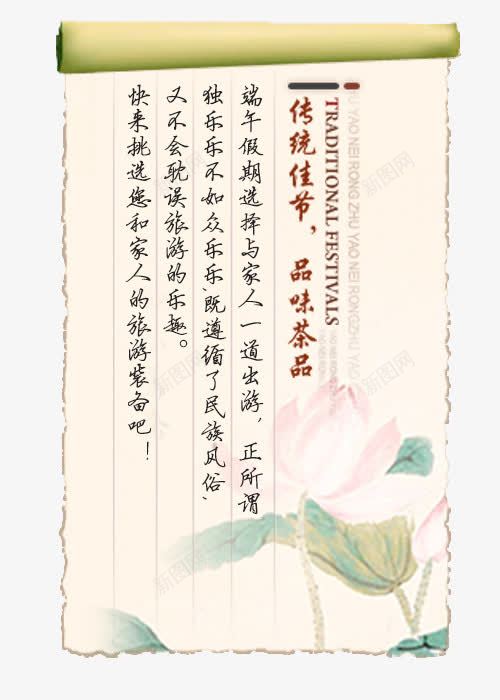 ZHU YAO NEI RONG ZHU YAO NEI RONGZHU YAO
TRADITIONAL FESTIVALS
传统佳节，品味茶品
端午假期选择与家人一道出游，正所谓
独乐乐不如众乐乐，既遵循了民族风俗，
又不会耽误旅游的乐趣。
快来挑选您和家人的旅游装备吧！
新图网